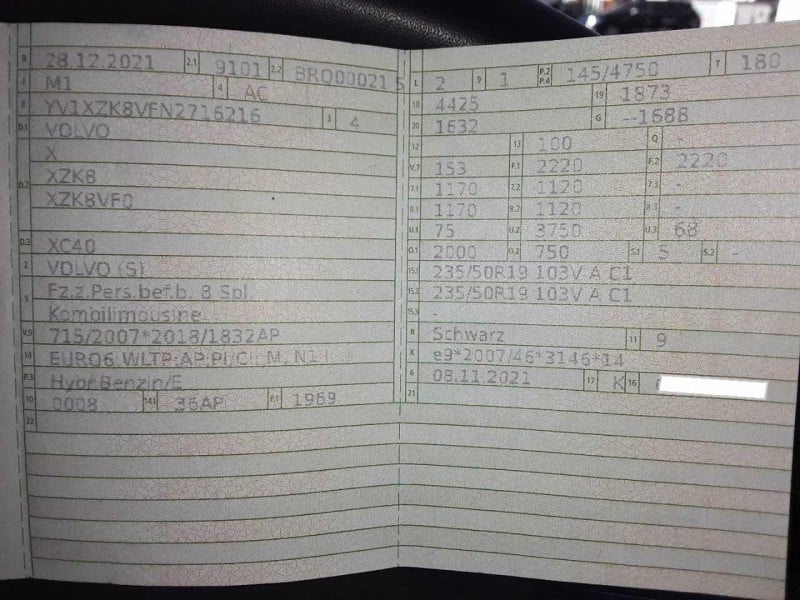 B 28.12.2021 2.1 9101 2.2 BRQ00021 5
J M1 4 AC
E YV1XZK8VFN2716216 3 4
D.1 VOLVO
X
D.2 XZK8
XZK8VF0
D.3 XC40
2 VOLVO (S)
5 Fz.z.Pers.bef.b. 8 Spl.
Kombilimousine
V.9 715/2007*2018/1832AP
14 EURO6 WLTP;AP;PI/CI; M, N1 I
P.3 Hybr.Benzin/E
10 0008 14.1 36AP P.1 1969
22
L 2 9 1 P.2 P.4 145/4750 T 180
18 4425 19 1873
20 1632 G --1688
12 13 100 Q -
V.7 153 F.1 2220 F.2 2220
7.1 1170 7.2 1120 7.3 -
8.1 1170 8.2 1120 8.3 -
U.1 75 U.2 3750 U.3 68
O.1 2000 O.2 750 S.1 5 S.2 -
15.1 235/50R19 103V A C1
15.2 235/50R19 103V A C1
15.3 -
R Schwarz 11 9
K e9*2007/46*3146*14
6 08.11.2021 17 K 16
21